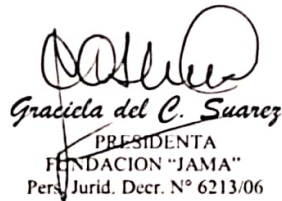 Graciela del C. Suarez
PRESIDENTA
FUNDACION "JAMA"
Pers. Jurid. Decr. N° 6213/06